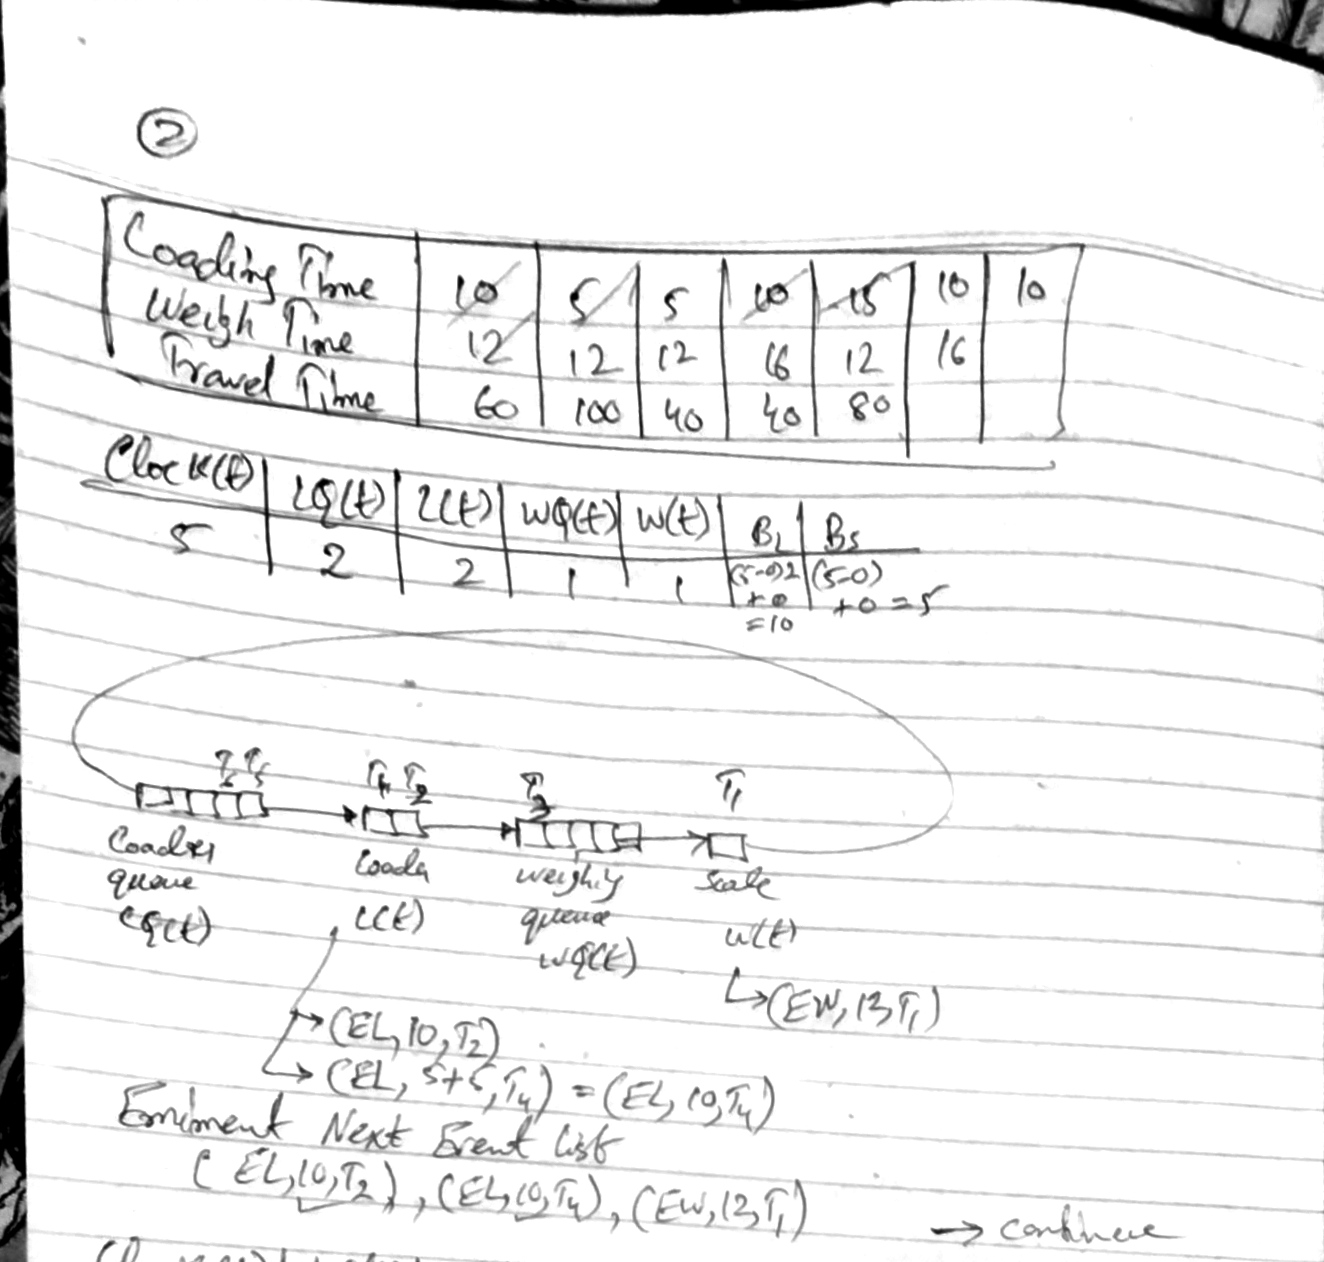 2
Loading Time 10 5 5 10 15 10 10
Weigh Time 12 12 12 16 12 16
Travel Time 60 100 40 40 80
Clock(t) LQ(t) L(t) WQ(t) W(t) BL BS
5 2 2 1 1 (5-0)2 (5-0)
+0 +0=5
=10
T6 T5 T4 T2 T3 T1
Loader Loader weighing Scale
queue L(t) queue W(t)
LQ(t) WQ(t)
→(EW,12,T1)
→(EL,10,T2)
→(EL, 5+5,T4) = (EL,10,T4)
Next Event list
(EL,10,T2), (EL,10,T4), (EW,12,T1)
→ continue